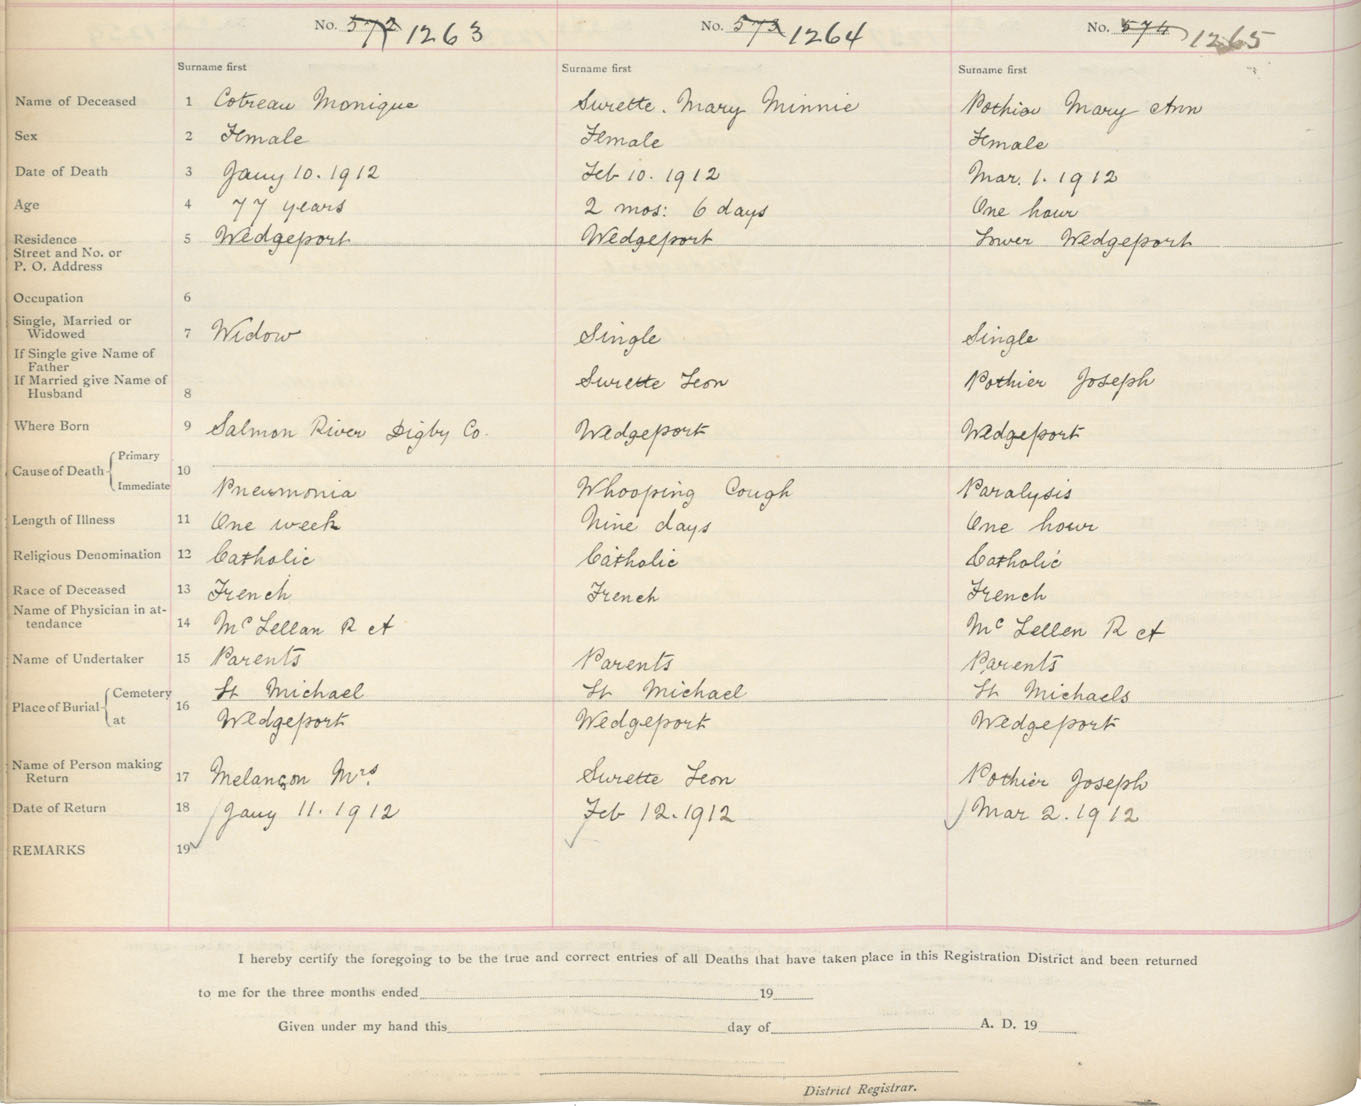 No. 572 1263 No. 573 1264 No. 574 1265
Surname first Surname first Surname first
Name of Deceased 1 Cotreau Monique Surette. Mary Minnie Pothier Mary Ann
Sex 2 Female Female Female
Date of Death 3 Jany 10. 1912 Feb 10. 1912 Mar. 1. 1912
Age 4 77 years 2 mos: 6 days One hour
Residence 5 Wedgeport Wedgeport Lower Wedgeport
Street and No. or
P. O. Address
Occupation 6
Single, Married or
Widowed 7 Widow Single Single
If Single give Name of
Father
If Married give Name of Surette Leon Pothier Joseph
Husband 8
Where Born 9 Salmon River Digby Co. Wedgeport Wedgeport
Primary
Cause of Death 10
Immediate Pneumonia Whooping Cough Paralysis
Length of Illness 11 One week Nine days One hour
Religious Denomination 12 Catholic Catholic Catholic
Race of Deceased 13 French French French
Name of Physician in at-
tendance 14 McLellan R A McLellen R A
Name of Undertaker 15 Parents Parents Parents
Cemetery St Michael St Michael St Michaels
Place of Burial 16
at Wedgeport Wedgeport Wedgeport
Name of Person making
Return 17 Melançon Mrs. Surette Leon Pothier Joseph
Date of Return 18 Jany 11. 1912 Feb 12. 1912 Mar 2. 1912
REMARKS 19
I hereby certify the foregoing to be the true and correct entries of all Deaths that have taken place in this Registration District and been returned
to me for the three months ended 19
Given under my hand this day of A. D. 19
District Registrar.